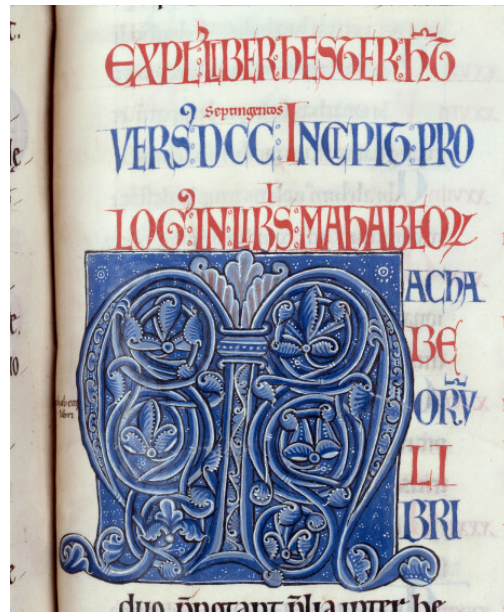 EXPL' LIBER HESTER. H̅T
Septingentos
VERS' DCC. INCIPIT PRO
LOG' IN LIB̅S. MAHABEOꝜ
MACHA
BE
ORV̅
LI
BRI
duo p̄notant p̄lia inter he